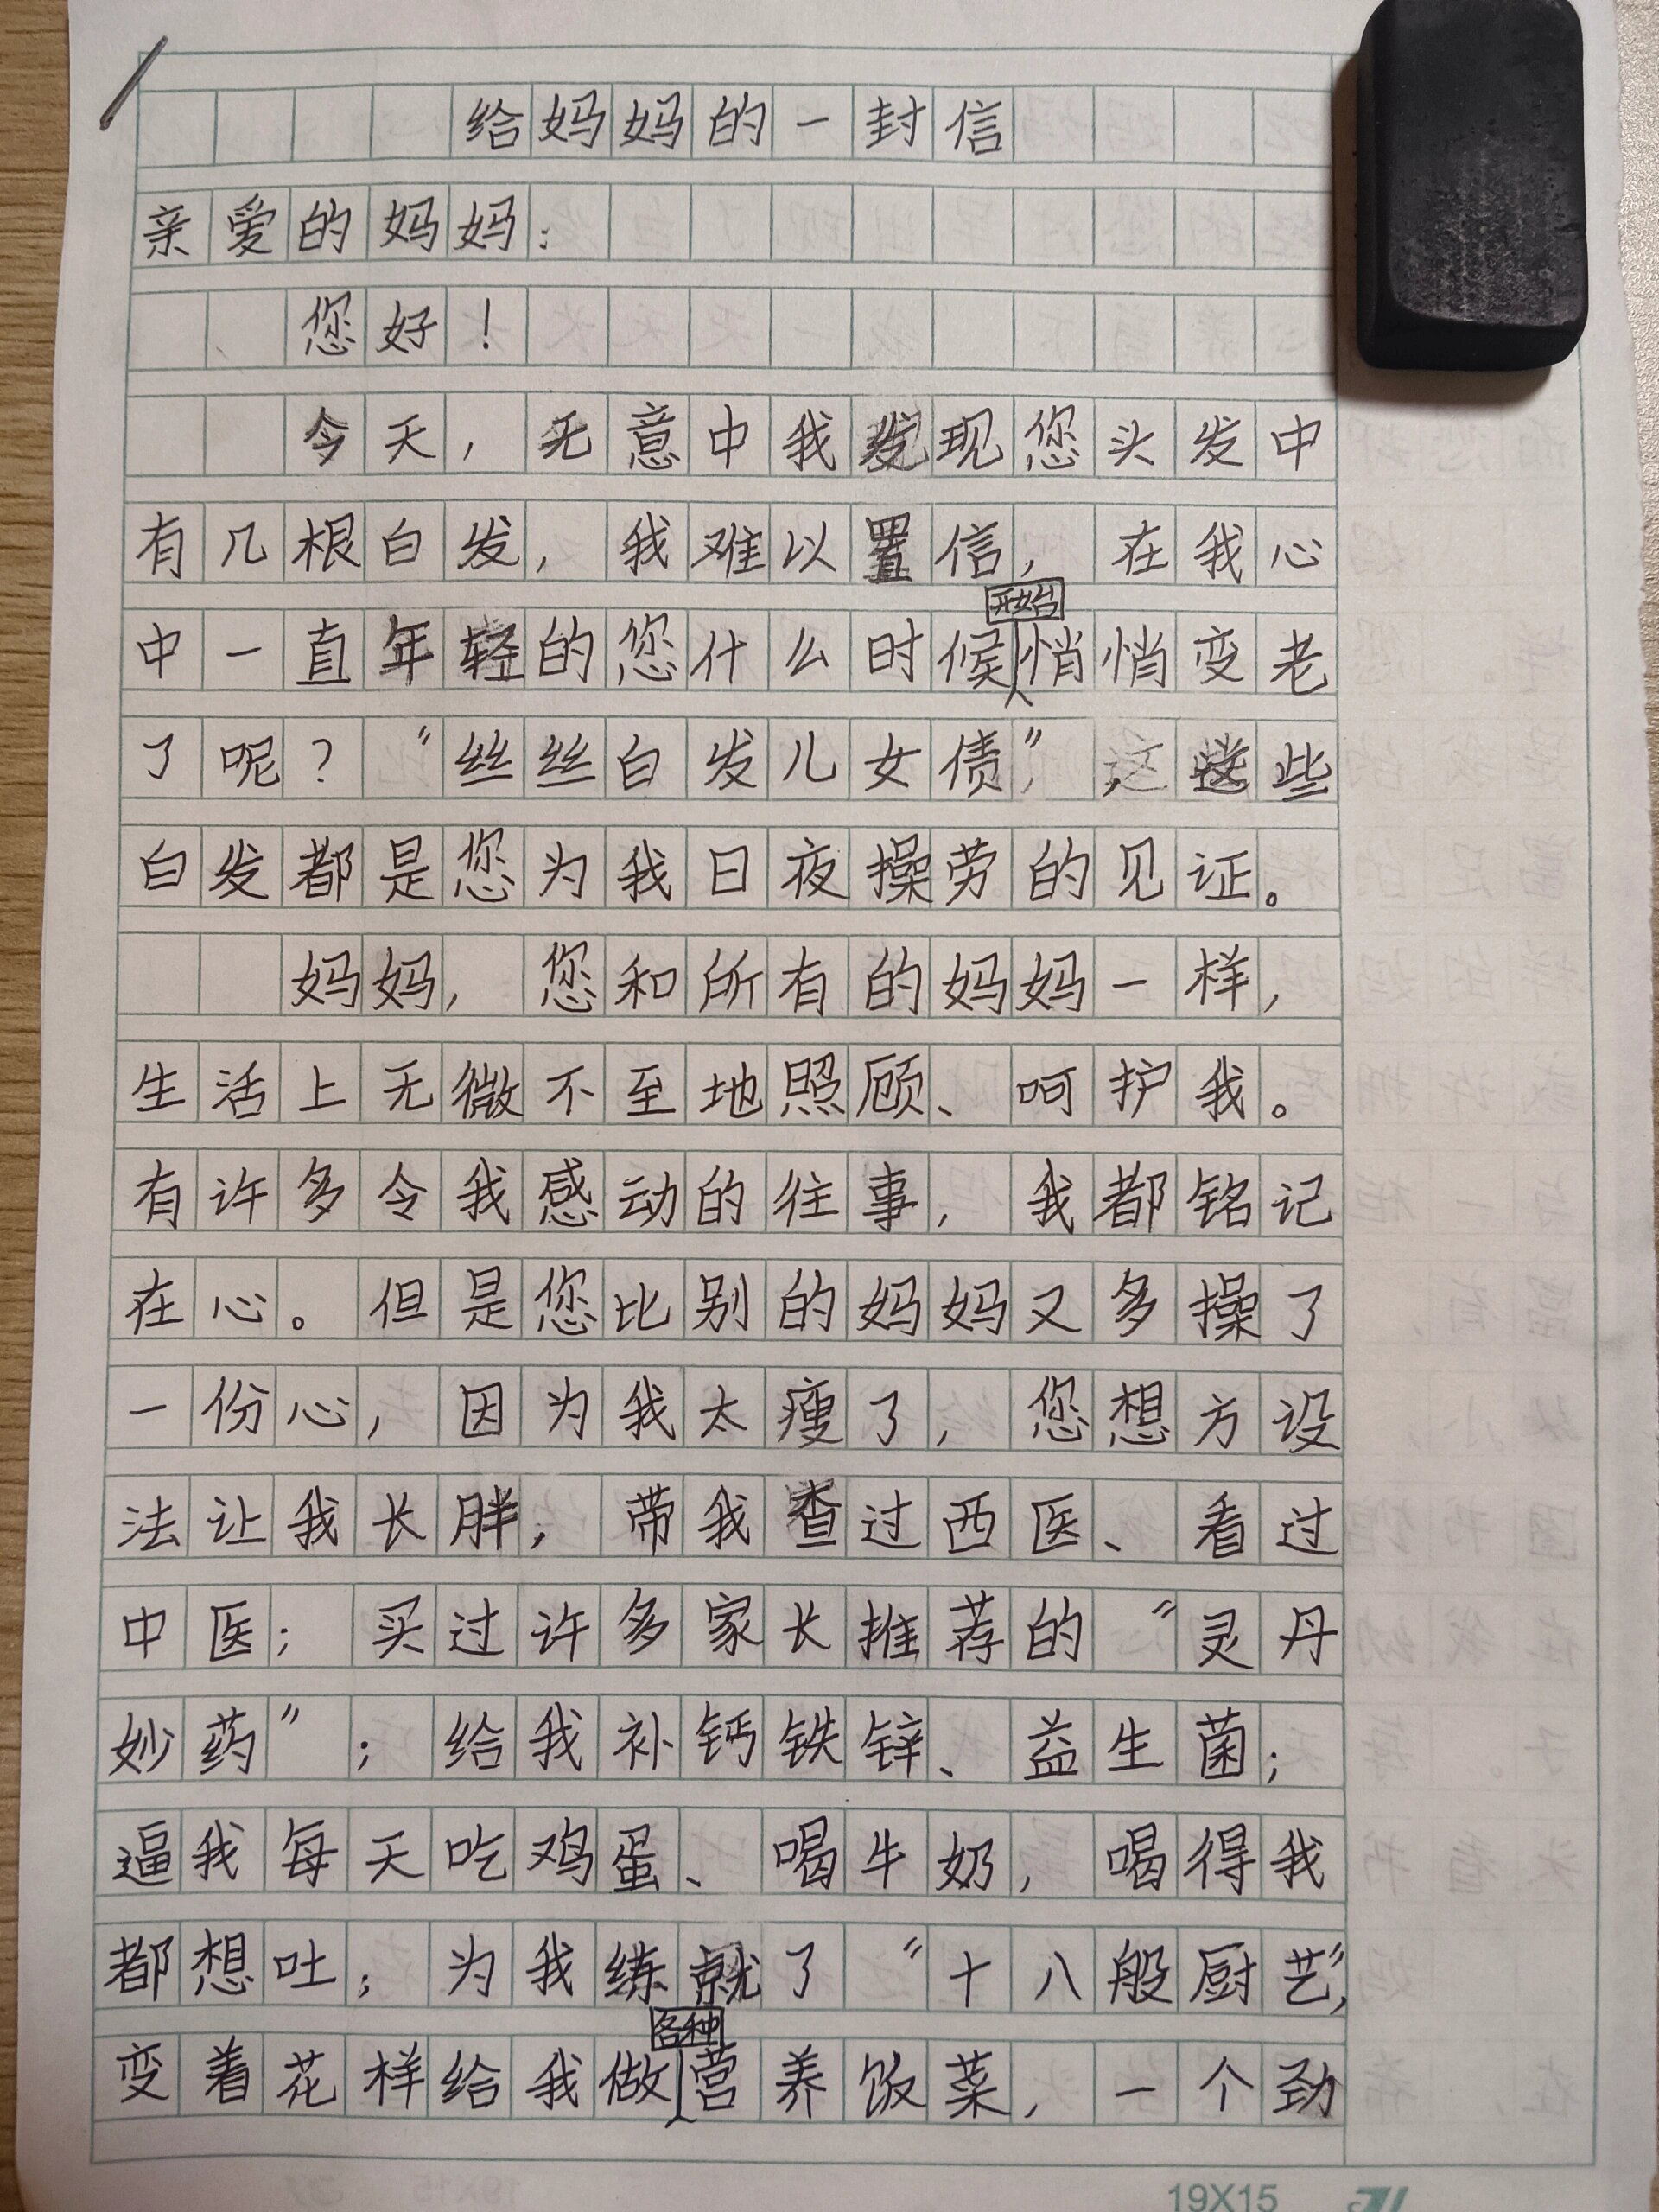 给妈妈的一封信
亲爱的妈妈：
您好！
今天，无意中我发现您头发中
有几根白发，我难以置信，在我心
中一直年轻的您什么时候开始悄悄变老
了呢？“丝丝白发儿女债”，这些
白发都是您为我日夜操劳的见证。
妈妈，您和所有的妈妈一样，
生活上无微不至地照顾、呵护我。
有许多令我感动的往事，我都铭记
在心。但是您比别的妈妈又多操了
一份心，因为我太瘦了，您想方设
法让我长胖，带我查过西医、看过
中医；买过许多家长推荐的“灵丹
妙药”；给我补钙铁锌、益生菌；
逼我每天吃鸡蛋、喝牛奶，喝得我
都想吐；为我练就了“十八般厨艺”，
变着花样给我做各种营养饭菜，一个劲
19X15